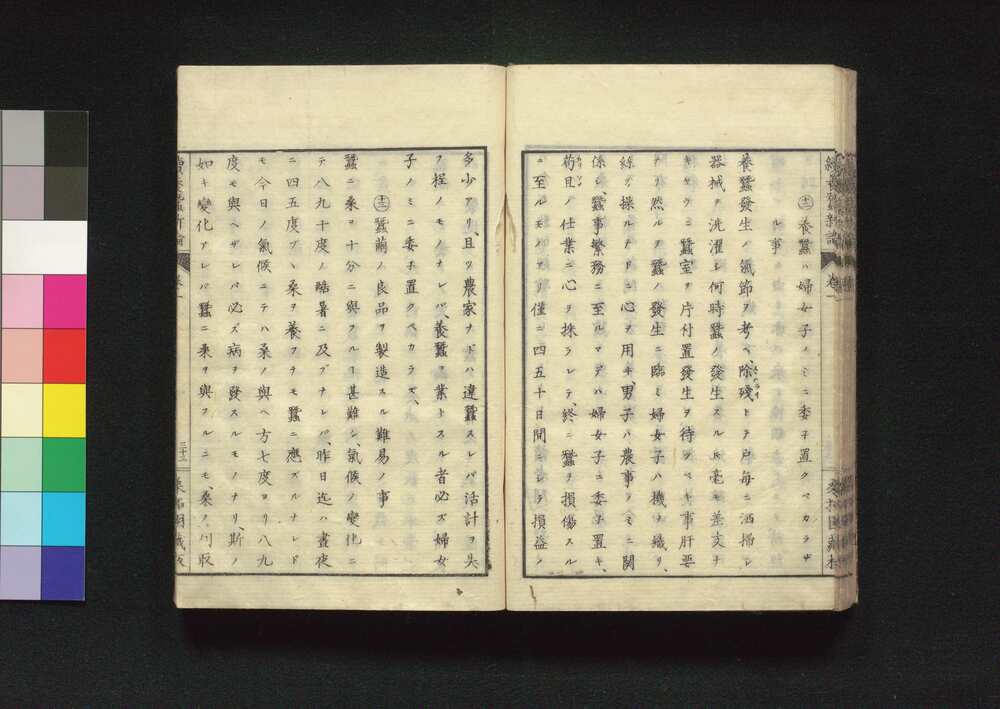 養蠶ハ婦女子ノミニ委子置クベカラザ
ル事
養蠶發生ノ氣節ヲ考ヘ、除殘トテ戸毎ニ洒掃シ
器械ヲ洗濯シ何時蠶ノ發生スル𪜈毫モ差支ナ
キヤウニ蠶室ヲ片付置發生ヲ待ツベキ事肝要
ナリ然ルヲ蠶ノ發生ニ臨ミ婦女子ハ機ヲ織リ、
絲ヲ操ルナドニ心ヲ用ヰ男子ハ農事ノミニ関
係シ、蠶事繁務ニ至ルマデハ婦女子ニ委子置キ、
苟且ノ仕業ニ心ヲ採ラレテ、終ニ蠶ヲ損傷スル
ニ至ルモノアリ僅ニ四五十日間ニシテ損益ノ
多少アリ、且ツ農家ナドハ違蠶スレバ活計ヲ失
フ程ノモノナレバ、養蠶ヲ業トスル者必ズ婦女
子ノミニ委子置クベカラズ、
蠶繭ノ良品ヲ製造スル難易ノ事
蠶ニ桑ヲ十分ニ與フルヿ甚難シ、氣候ノ變化ニ
テ八九十度ノ酷暑ニ及ブナレバ、昨日迄ハ晝夜
ニ四五度ヅヽ桑ヲ養フヲモ蠶ニ應ズルナレド
モ今日ノ氣候ニテハ桑ノ與ヘ方七度ヨリ八九
度モ與ヘザレバ必ズ病ヲ發スルモノナリ、斯ノ
如キ變化アレバ蠶ニ桑ヲ與フルニモ、桑ヲ刈取
卷一
三十三